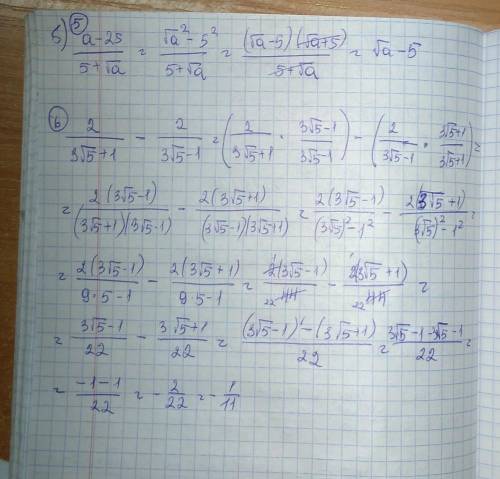 5
б) (a-25)/(5+√a) = (√a² - 5²)/(5+√a) = ((√a-5)(√a+5))/(5+√a) = √a-5
6
2/(3√5+1) - 2/(3√5-1) = (2/(3√5+1) · (3√5-1)/(3√5-1)) - (2/(3√5-1) · (3√5+1)/(3√5+1)) =
= 2(3√5-1)/((3√5+1)(3√5-1)) - 2(3√5+1)/((3√5-1)(3√5+1)) = 2(3√5-1)/((3√5)²-1²) - 2(3√5+1)/((3√5)²-1²) =
= 2(3√5-1)/(9·5-1) - 2(3√5+1)/(9·5-1) = ¹2(3√5-1)/₂₂44 - ¹2(3√5+1)/₂₂44 =
= (3√5-1)/22 - (3√5+1)/22 = ((3√5-1) - (3√5+1))/22 = (3√5-1-3√5-1)/22 =
= (-1-1)/22 = -2/22 = -1/11